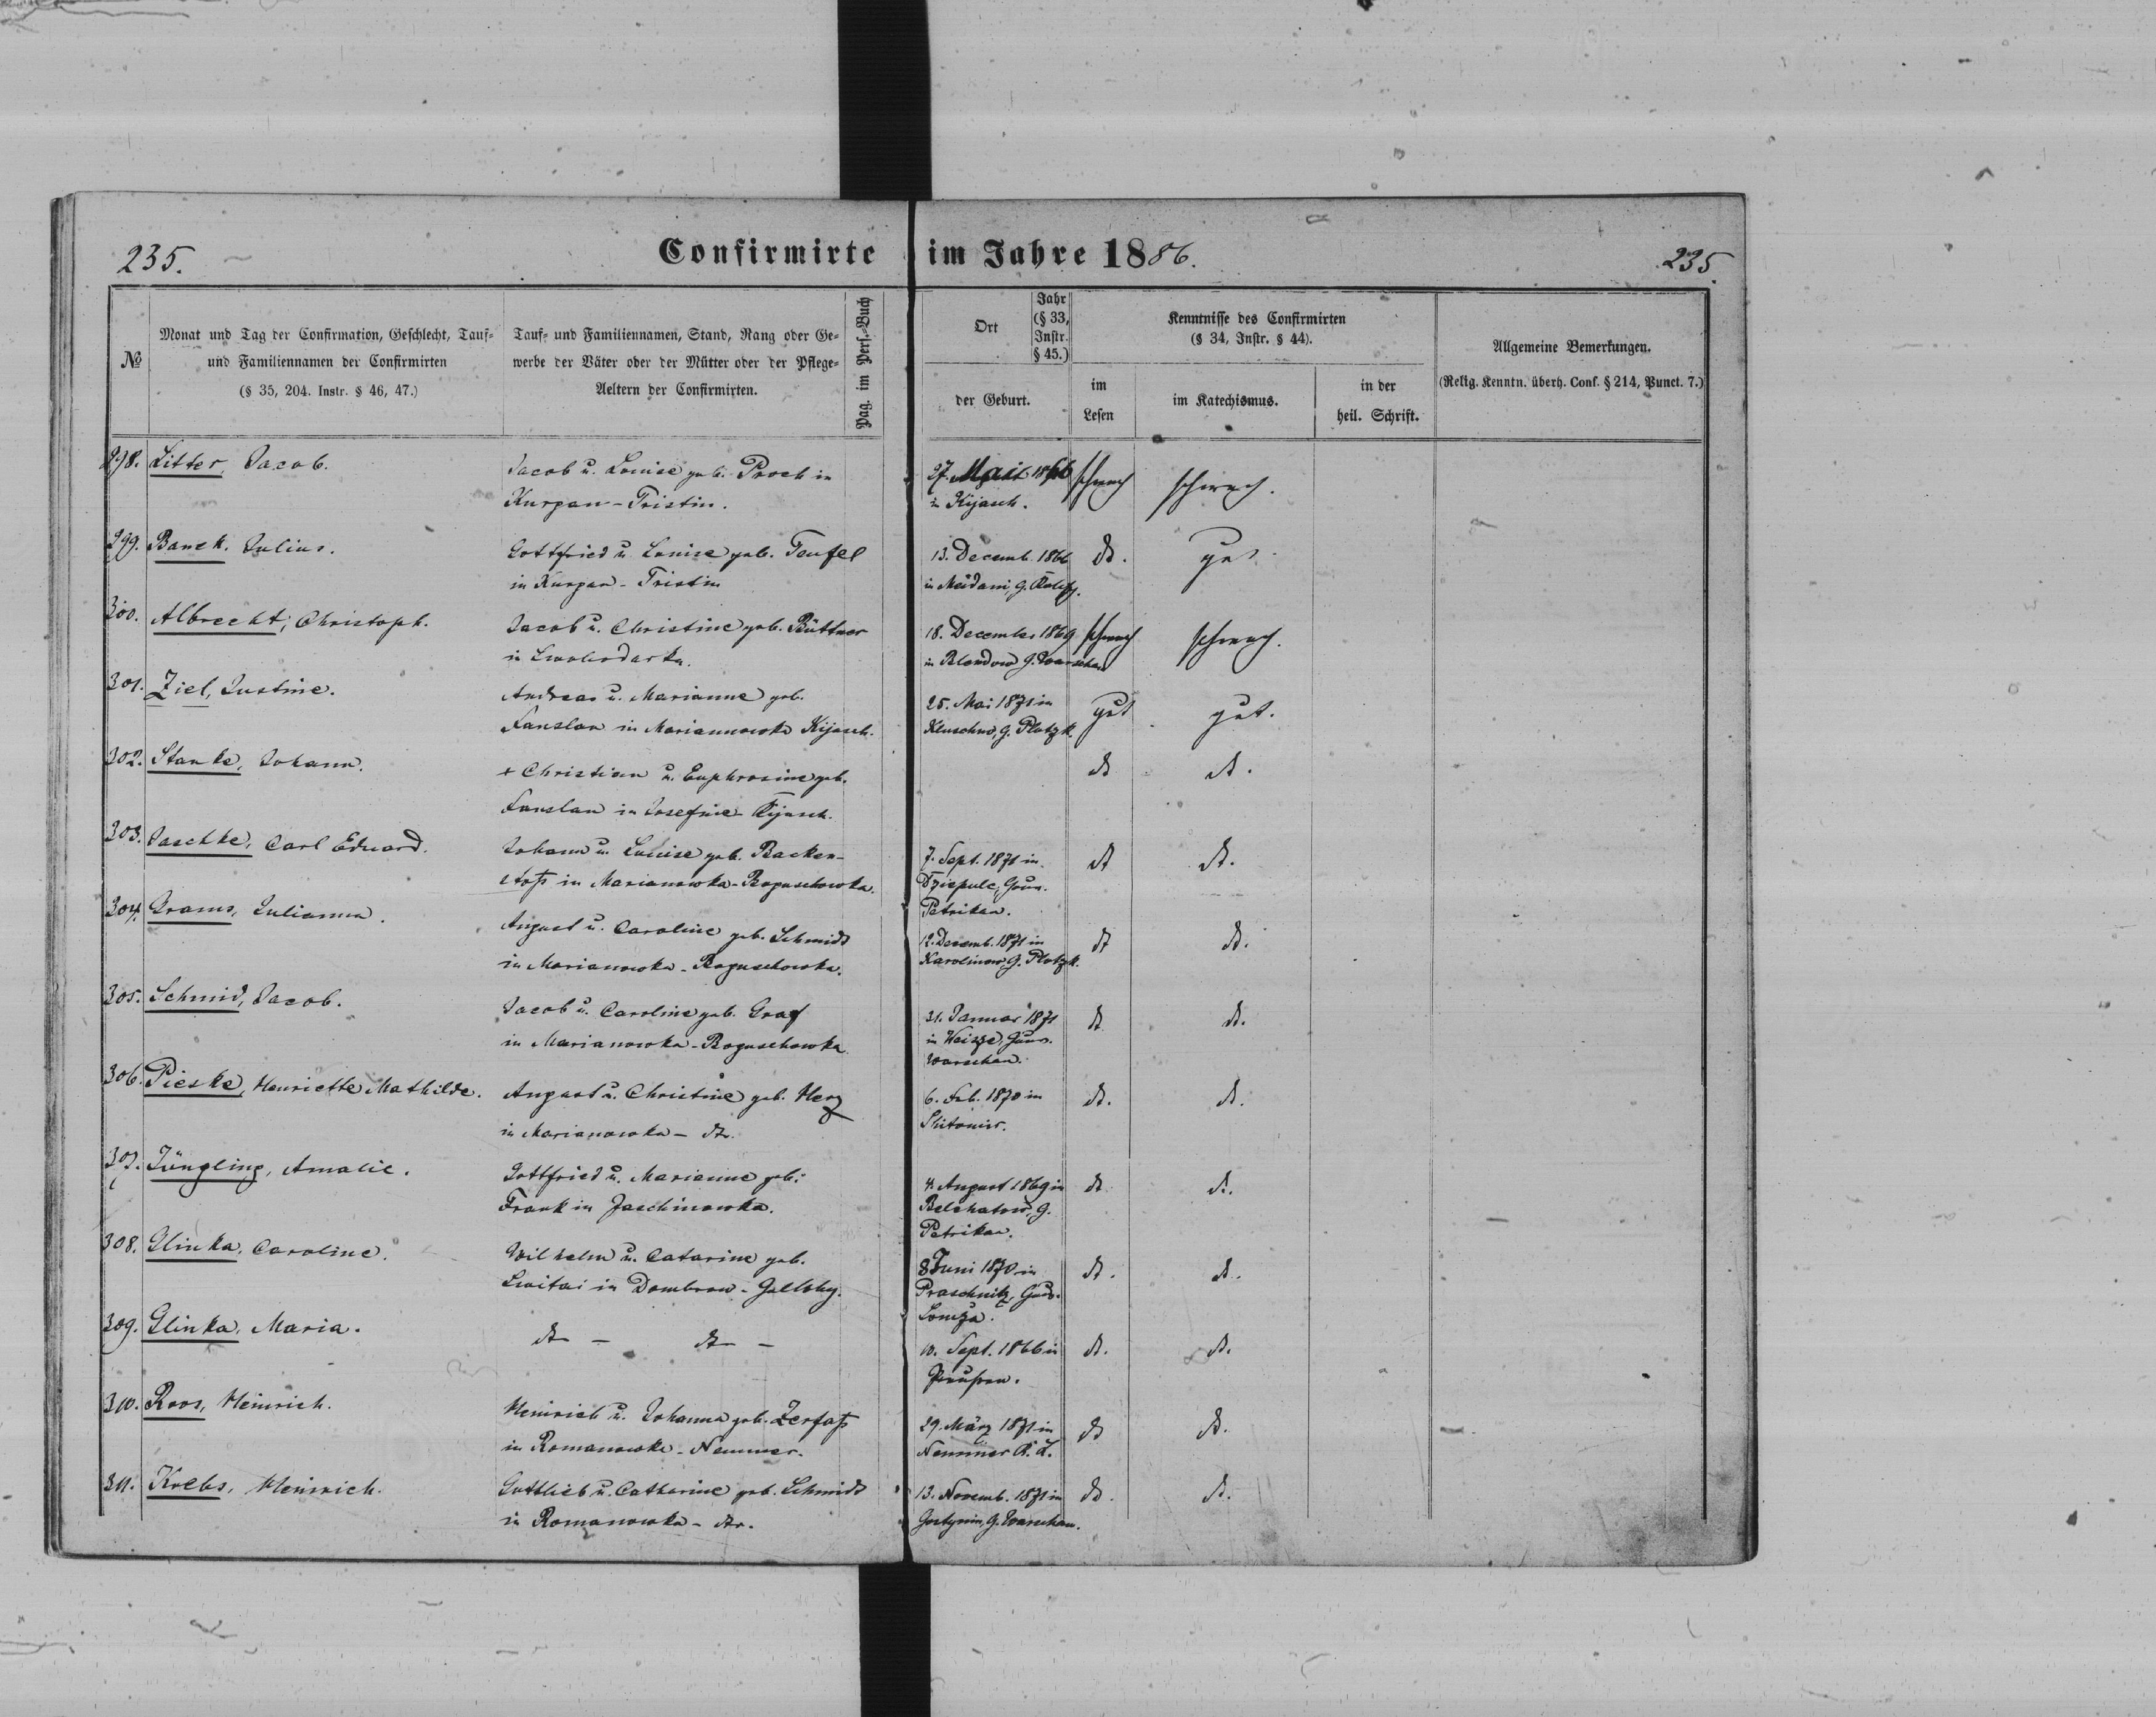 235.
Confirmirte im Jahre 1886.
235
№
Monat und Tag der Confirmation, Geschlecht, Tauf-
und Familiennamen der Confirmirten
(§ 35, 204. Instr. § 46, 47.)
Tauf- und Familiennamen, Stand, Rang oder Ge-
werbe der Väter oder der Mütter oder der Pflege-
Aeltern der Confirmirten.
Pag. im Pers.-Buch
Ort
Jahr
(§ 33,
Instr.
§ 45.)
der Geburt.
Kenntnisse des Confirmirten
(§ 34, Instr. § 44).
im
Lesen
im Katechismus.
in der
heil. Schrift.
Allgemeine Bemerkungen.
(Relig. Kenntn. überh. Conf. § 214, Punct. 7.)
298. Litter, Jacob.
Jacob u. Louise geb. Proch in
Kurgan-Tristin.
27. Mai 1866
in Kijasch.
schwach
schwach.
299. Banek. Julius.
Gottfried u. Louise geb. Teufel
in Kurgan-Tristin
13. Decemb. 1866
in Meidani, G.
dt.
gut
300. Albrecht, Christoph.
Jacob u. Christine geb. Büttner
in
18. December 1869
in Blendow G. Warschau
schwach
schwach.
301. Ziel, Justine.
Andreas u. Marianne geb.
Fanslau in Mariannowka Kijasch.
25. Mai 1871 in
G. Plotzk.
gut
gut.
302. Stanke, Johann.
+ Christian u. Euphrosine geb.
Fanslau in Josefine Kijasch.
dt
dt.
303. Jaschke, Carl Eduard.
Johann u. Louise geb. Backen-
stoß in Marianowka-Boguschowka.
7. Sept. 1871 in
Dziepulc, Gouv.
Petrikau.
dt
dt.
304. Grams, Julianna.
August u. Caroline geb. Schmidt
in Marianowka-Boguschowka.
12. Decemb. 1871 in
Karolinow, G. Plotzk.
dt
dt.
305. Schmid, Jacob.
Jacob u. Caroline geb. Graf
in Marianowka-Boguschowka
31. Januar 1871
in Gouv.
Warschau.
dt
dt.
306. Pieske, Henriette Mathilde.
August u. Christine geb. Herz
in Marianowka - dto.
6. Feb. 1870 in
Shitomir.
dt.
dt.
307. Jüngling, Amalie.
Gottfried u. Marianne geb.
Frank in Jaschinowka.
4. August 1869 in
Belchatow, G.
Petrikau.
dt
dt.
308. Glinka, Caroline.
Wilhelm u. Catarine geb.
in Dombrow-
8 Juni 1870 in
Praschnitz, Gouv.
Lomza.
dt.
dt.
309. Glinka, Maria.
dto - dto -
10. Sept. 1866 in
Preußen.
dt.
dt.
310. Roos, Heinrich.
Heinrich u. Johanna geb. Zerfaß
in Romanowka-Nemmer.
29. März 1871 in
Nemmer
dt
dt.
311. Krebs, Heinrich.
Gottlieb u. Catharine geb. Schmidt
in Romanowka - dto.
13. Novemb. 1871 in
Gostynin, G. Warschau.
dt.
dt.